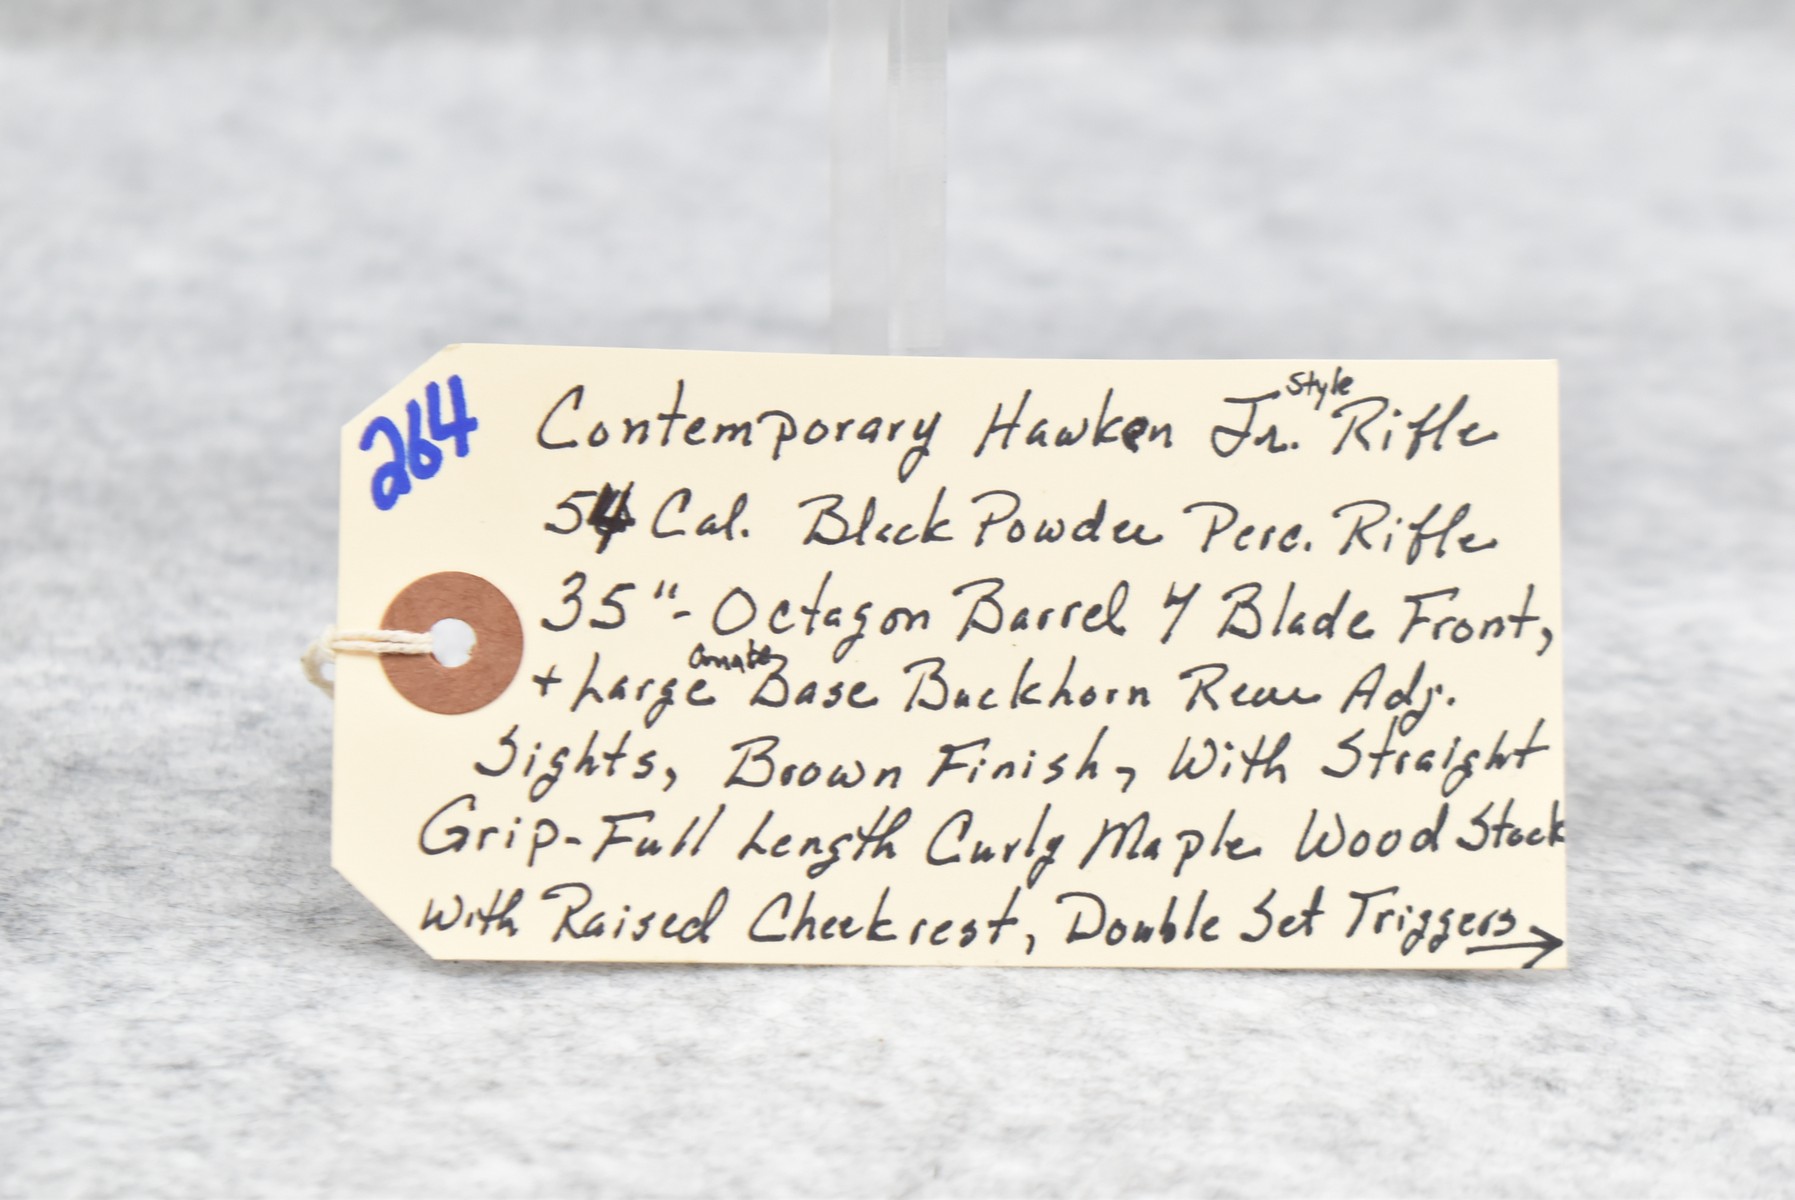 264
Contemporary Hawken Jr. Style Rifle
54 Cal. Black Powder Perc. Rifle
35"- Octagon Barrel Blade Front,
+ Large Ornate Base Buckhorn Rear Adj.
Sights, Brown Finish, With Straight
Grip-Full Length Curly Maple Wood Stock
With Raised Cheekrest, Double Set Triggers →